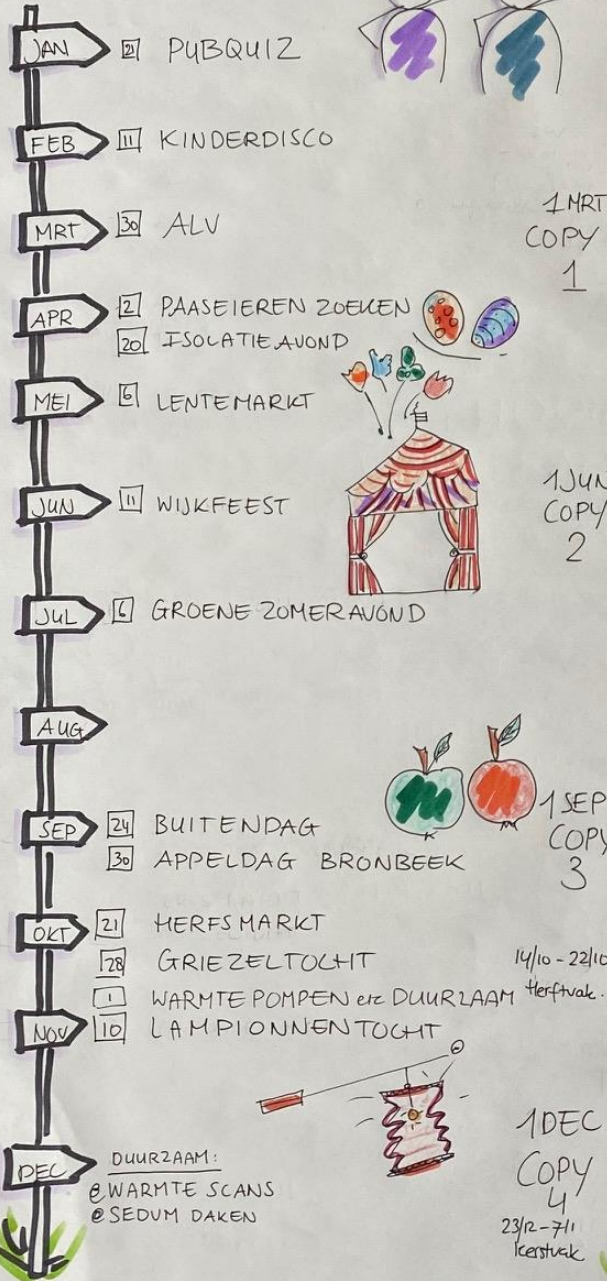 JAN 21 PUBQUIZ
FEB 11 KINDERDISCO
MRT 30 ALV
1 MRT
COPY
1
APR 2 PAASEIEREN ZOEKEN
20 ISOLATIEAVOND
MEI 6 LENTEMARKT
JUN 11 WIJKFEEST
1 JUN
COPY
2
JUL 6 GROENE ZOMERAVOND
AUG
SEP 24 BUITENDAG
30 APPELDAG BRONBEEK
1 SEP
COPY
3
OKT 21 HERFSMARKT
28 GRIEZELTOCHT
14/10 - 22/10
Herftvak.
1 WARMTE POMPEN etc DUURZAAM
NOV 10 LAMPIONNENTOCHT
DEC DUURZAAM:
WARMTE SCANS
SEDUM DAKEN
1 DEC
COPY
4
23/12 - 7/1
kerstvak